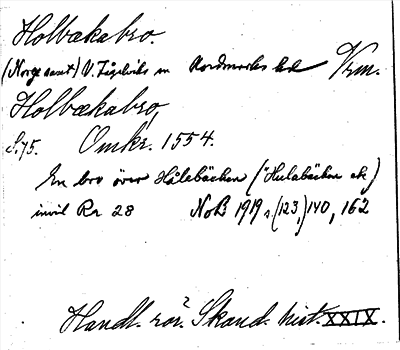 Holbækabro.
(Norge samt) V. Fågelviks sn Nordmarks hd Vrm.
Holbækabro,
S. 75. Omkr. 1554.
En bro över Hålebäcken (Hulabäcken ek.)
invil Rr 28 NoB 1919 s. (123,) 140, 162
Handl. rör? Skand. hist. XXIX.